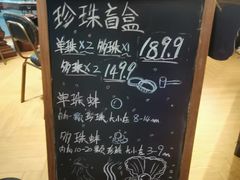 珍珠盲盒
单珠x2 多珠x1 189.9
多珠x2 149.9
单珠蚌
内1颗珍珠 大小在8-14mm
多珠蚌
内有10-20颗珍珠 大小3-9mm